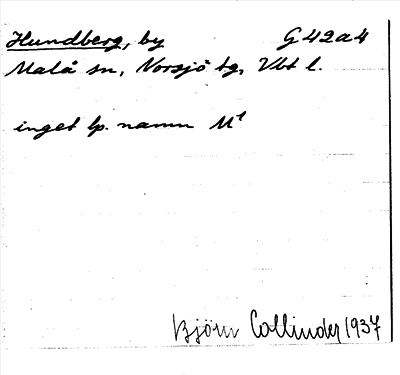 Hundberg, by G 42a4
Malå sn, Norsjö tg, Vbt l.
inget lp. namn M¹
Björn Collinder 1937